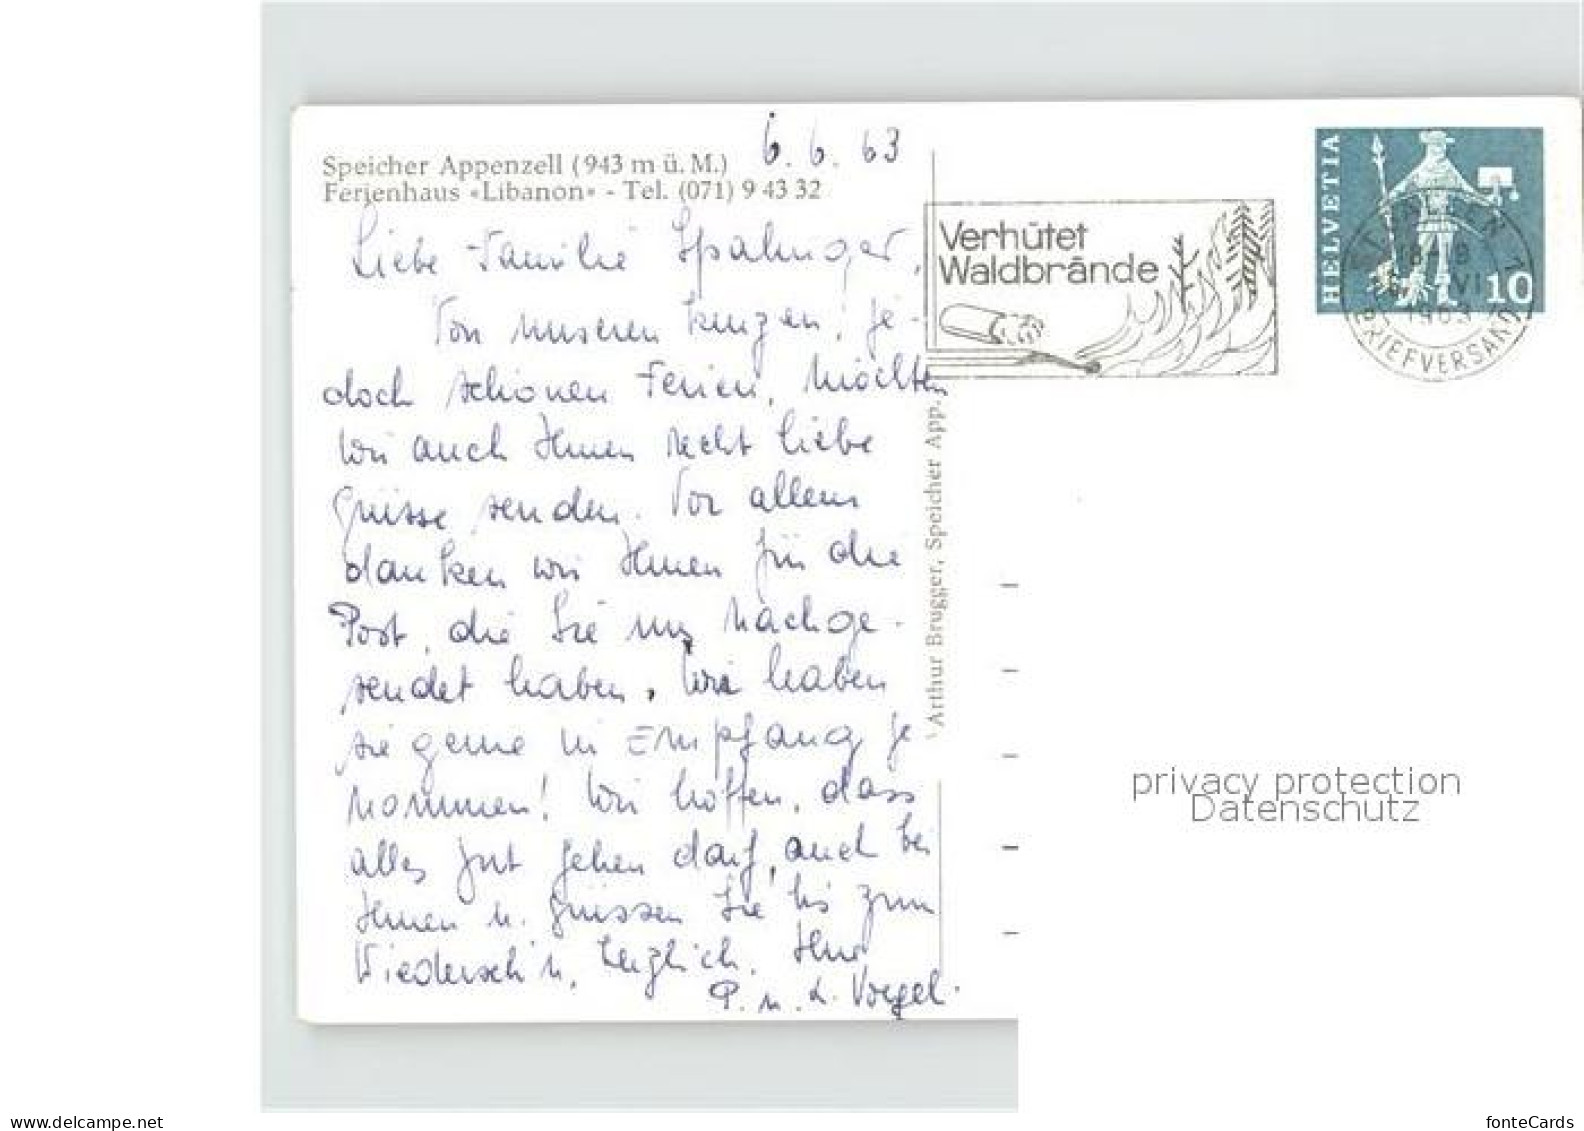 Speicher Appenzell (943 m ü. M.)
Ferienhaus «Libanon» - Tel. (071) 9 43 32
6. 6. 63
Liebe Familie Spalinger,
Von unseren kurzen, je-
doch schönen Ferien, möchten
wir auch Ihnen recht liebe
Grüsse senden. Vor allem
danken wir Ihnen für die
Post, die Sie uns nachge-
sendet haben. Wir haben
sie gerne in Empfang ge
nommen! Wir hoffen, dass
alles gut gehen darf, auch bei
Ihnen u. grüssen Sie bis zum
Wiedersehn, herzlich. Ihre
P. u. L. Voegel.
Arthur Brugger, Speicher App.
Verhütet
Waldbrände
HELVETIA
10
ST. GALLEN 1
18-19
6. VI.
1963
BRIEFVERSAND
privacy protection
Datenschutz
www.delcampe.net
fonteCards